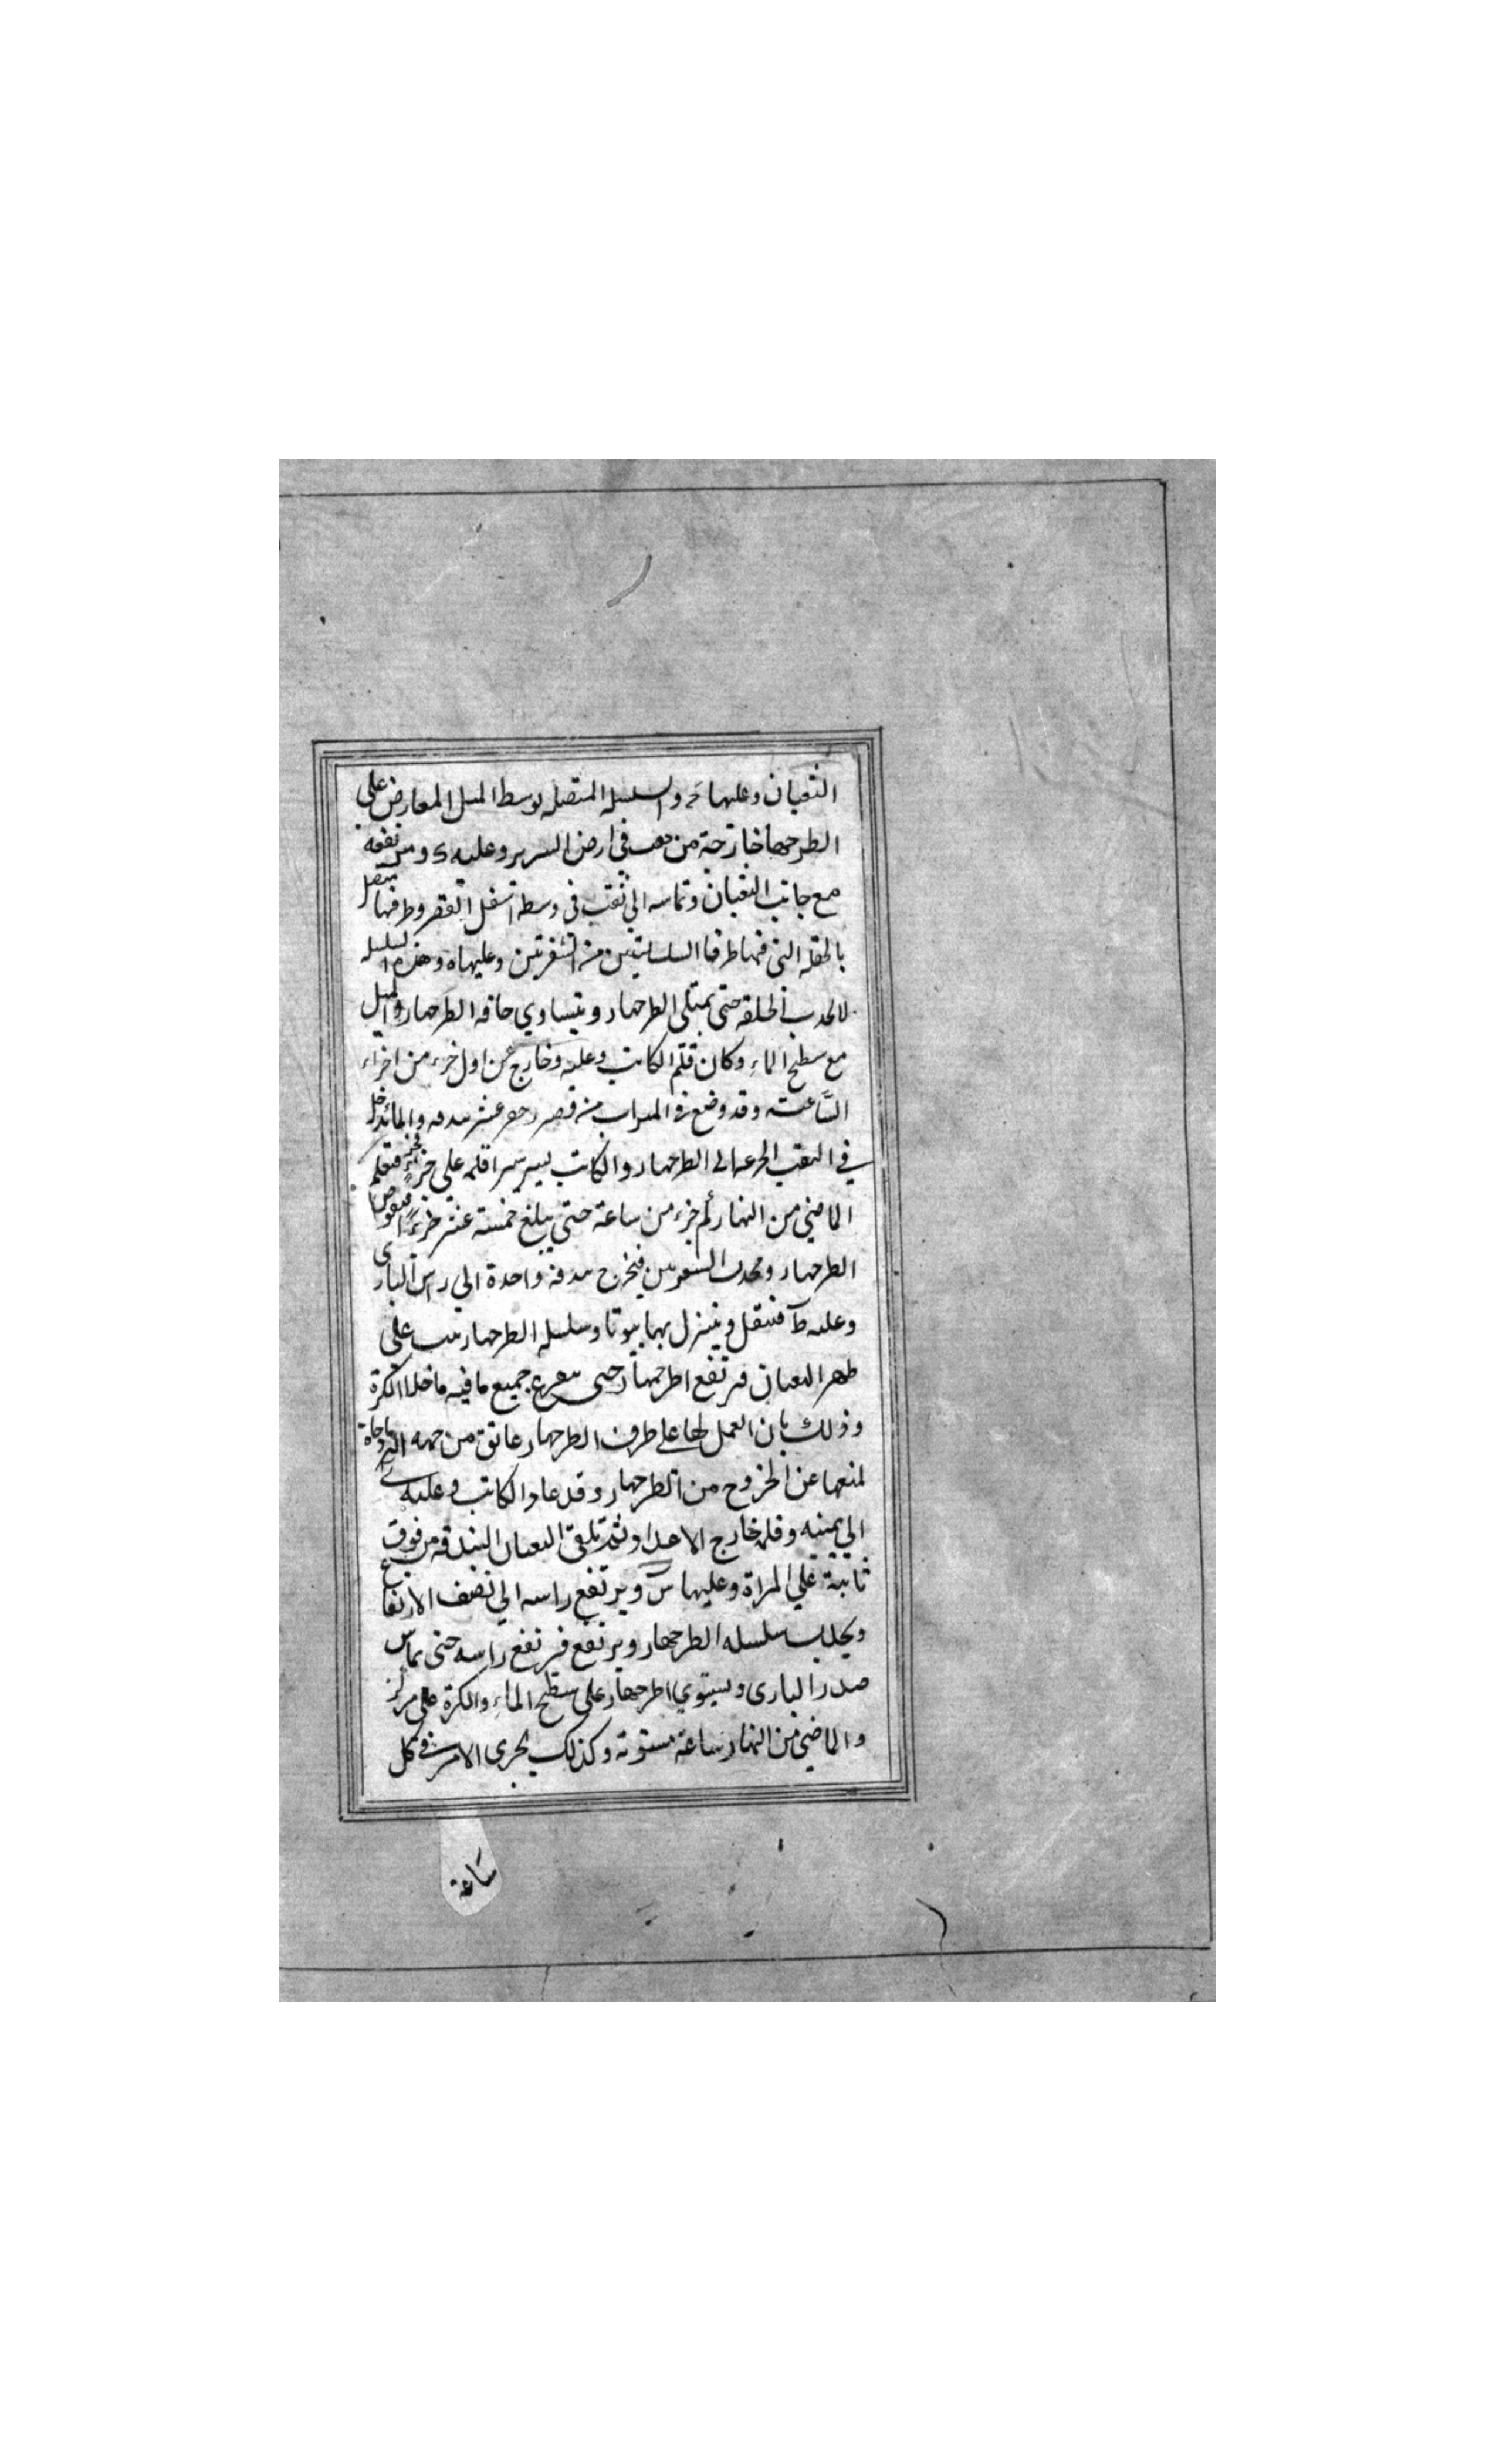 الثعبان وعليها ح والسلسله المتصله بوسط الميل المعارض على
الطرجهار خارجة من ثقب في ارض السرير وعليه د ومرتفعه
مع جانب الثعبان وتماسه الى ثقب فى وسط اسفل القصر وطرفها متصل
بالحلقه التى فيها طرفا السلسلتين من الشفرتين وعليها ه وهذه السلسله
لا تجذب الحلقه حتى يمتلى الطرجهار ويتساوي حافه الطرجهار والميل
مع سطح الماء وكان قلم الكاتب وعليه و خارج عن اول جزء من اجزاء
الساعة وقد وضع في الميزاب من قصر عشر بندقه والماء يدخل
في الثقب الى الطرجهار والكاتب يسير قلمه على جزء فيعلم
الماضي من النهار كم جزء من ساعة حتى يبلغ خمسة عشر جزءا فيغوص
الطرجهار ويجذب الشفرتين فيخرج بندقة واحدة الي راس البازى
وعليه ط فيثقل وينزل بها وسلسله الطرجهار على
ظهر الثعبان فيرتفع اطرجهار حتى يتفرغ جميع ما فيه ما خلا الكرة
وذلك بان العمل لها على طرف الطرجهار عائق من جهه
لمنعها عن الخروج من الطرجهار وقد عاد الكاتب وعليه ى
الي يمينه وقلمه خارج الاعداد ثم تلقى الثعبان البندقه من فوق
ثابتة علي المراة وعليها س ويرتفع راسه الي نصف الارتفاع
ويجذب سلسله الطرجهار ويرتفع فيرتفع راسه حتى يماس
صدر البازى ويستوي اطرجهار على سطح الماء والكرة على مركز
والماضي من النهار ساعة مستوية وكذلك يجرى الامر في كل
ساعة